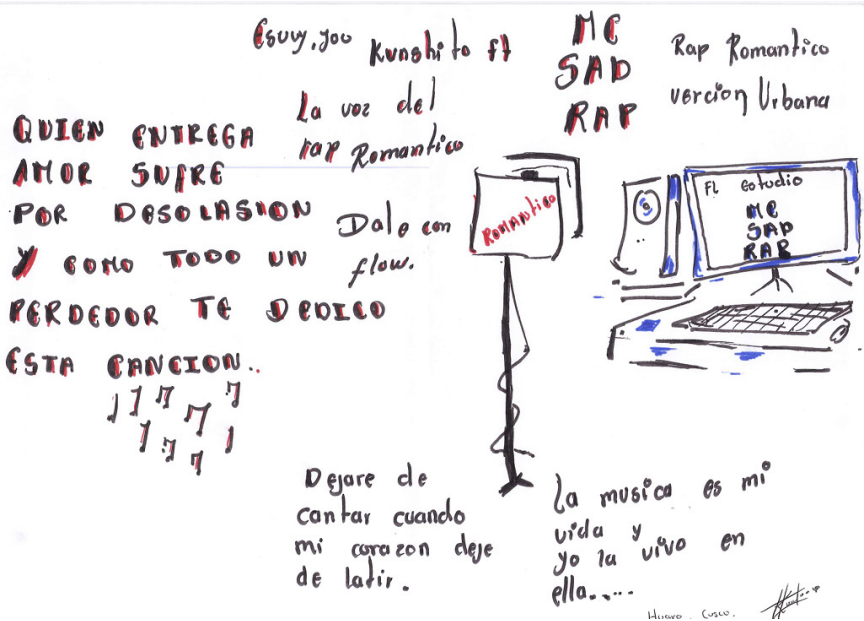 Esuvy, yoo Kunshito ft
MC
SAD
RAP
Rap Romantico
vercion Urbana
La voz del
rap Romantico
QUIEN ENTREGA
AMOR SUFRE
POR DESOLASION
Y COMO TODO UN
PERDEDOR TE DEDICO
ESTA CANCION..
Dale con
flow.
ROMANTICO
FL Estudio
MC
SAD
RAP
Dejare de
cantar cuando
mi corazon deje
de latir.
La musica es mi
vida y
yo la vivo en
ella.....
Cusco.